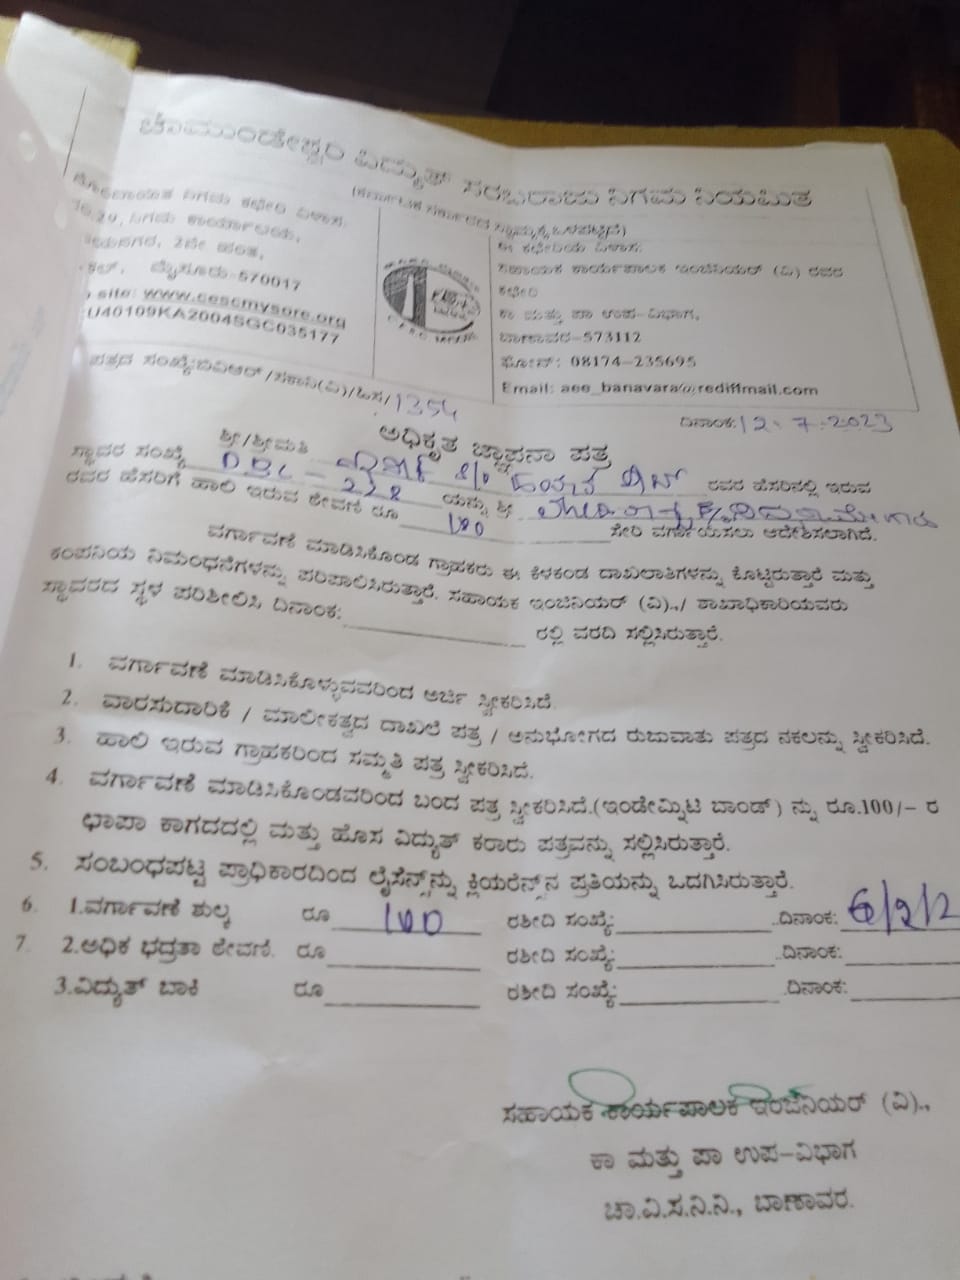 ಚಾಮುಂಡೇಶ್ವರಿ ವಿದ್ಯುತ್ ಸರಬರಾಜು ನಿಗಮ ನಿಯಮಿತ
(ಕರ್ನಾಟಕ ಸರ್ಕಾರದ ಸ್ವಾಮ್ಯಕ್ಕೆ ಒಳಪಟ್ಟಿದೆ)
ನಿಗಮ ಕಛೇರಿ ವಿಳಾಸ:
29, ನಿಗಮ ಕಾರ್ಯಾಲಯ,
2ನೇ ಹಂತ,
ಮೈಸೂರು-570017
site: www.cescmysore.org
U40109KA2004SGC035177
ಈ ಕಛೇರಿಯ ವಿಳಾಸ:
ಸಹಾಯಕ ಕಾರ್ಯಪಾಲಕ ಇಂಜಿನಿಯರ್ (ವಿ) ರವರ
ಕಛೇರಿ
ಕಾ ಮತ್ತು ಪಾ ಉಪ-ವಿಭಾಗ,
ಬಾಣಾವರ-573112
ಫೋನ್: 08174-235695
Email: aee_banavara@rediffmail.com
ಪತ್ರದ ಸಂಖ್ಯೆ: 1354
ದಿನಾಂಕ: 12.7.2023
ಅಧಿಕೃತ ಜ್ಞಾಪನಾ ಪತ್ರ
ಶ್ರೀ/ಶ್ರೀಮತಿ
ಸ್ಥಾವರ ಸಂಖ್ಯೆ DBL-228 ರವರ ಹೆಸರಿನಲ್ಲಿ ಇರುವ
ಯನ್ನು ಶ್ರೀ
ರವರ ಹೆಸರಿಗೆ ಹಾಲಿ ಇರುವ ಠೇವಣಿ ರೂ 100 ಸೇರಿ ವರ್ಗಾಯಿಸಲು ಆದೇಶಿಸಲಾಗಿದೆ.
ವರ್ಗಾವಣೆ ಮಾಡಿಸಿಕೊಂಡ ಗ್ರಾಹಕರು ಈ ಕೆಳಕಂಡ ದಾಖಲಾತಿಗಳನ್ನು ಕೊಟ್ಟಿರುತ್ತಾರೆ ಮತ್ತು
ಕಂಪನಿಯ ನಿಬಂಧನೆಗಳನ್ನು ಪರಿಪಾಲಿಸಿರುತ್ತಾರೆ. ಸಹಾಯಕ ಇಂಜಿನಿಯರ್ (ವಿ).,/ ಶಾಖಾಧಿಕಾರಿಯವರು
ಸ್ಥಾವರದ ಸ್ಥಳ ಪರಿಶೀಲಿಸಿ ದಿನಾಂಕ: ರಲ್ಲಿ ವರದಿ ಸಲ್ಲಿಸಿರುತ್ತಾರೆ.
1. ವರ್ಗಾವಣೆ ಮಾಡಿಸಿಕೊಳ್ಳುವವರಿಂದ ಅರ್ಜಿ ಸ್ವೀಕರಿಸಿದೆ.
2. ವಾರಸುದಾರಿಕೆ / ಮಾಲೀಕತ್ವದ ದಾಖಲೆ ಪತ್ರ / ಅನುಭೋಗದ ರುಜುವಾತು ಪತ್ರದ ನಕಲನ್ನು ಸ್ವೀಕರಿಸಿದೆ.
3. ಹಾಲಿ ಇರುವ ಗ್ರಾಹಕರಿಂದ ಸಮ್ಮತಿ ಪತ್ರ ಸ್ವೀಕರಿಸಿದೆ.
4. ವರ್ಗಾವಣೆ ಮಾಡಿಸಿಕೊಂಡವರಿಂದ ಬಂದ ಪತ್ರ ಸ್ವೀಕರಿಸಿದೆ.(ಇಂಡೇಮ್ನಿಟಿ ಬಾಂಡ್) ನ್ನು ರೂ.100/- ರ
ಛಾಪಾ ಕಾಗದದಲ್ಲಿ ಮತ್ತು ಹೊಸ ವಿದ್ಯುತ್ ಕರಾರು ಪತ್ರವನ್ನು ಸಲ್ಲಿಸಿರುತ್ತಾರೆ.
5. ಸಂಬಂಧಪಟ್ಟ ಪ್ರಾಧಿಕಾರದಿಂದ ಲೈಸೆನ್ಸ್‌ನ್ನು ಕ್ಲಿಯರೆನ್ಸ್‌ನ ಪ್ರತಿಯನ್ನು ಒದಗಿಸಿರುತ್ತಾರೆ.
6. 1.ವರ್ಗಾವಣೆ ಶುಲ್ಕ ರೂ 100 ರಶೀದಿ ಸಂಖ್ಯೆ: ದಿನಾಂಕ:
7. 2.ಅಧಿಕ ಭದ್ರತಾ ಠೇವಣಿ. ರೂ ರಶೀದಿ ಸಂಖ್ಯೆ: ದಿನಾಂಕ:
3.ವಿದ್ಯುತ್ ಬಾಕಿ ರೂ ರಶೀದಿ ಸಂಖ್ಯೆ: ದಿನಾಂಕ:
ಸಹಾಯಕ ಕಾರ್ಯಪಾಲಕ ಇಂಜಿನಿಯರ್ (ವಿ).,
ಕಾ ಮತ್ತು ಪಾ ಉಪ-ವಿಭಾಗ
ಚಾ.ವಿ.ಸ.ನಿ.ನಿ., ಬಾಣಾವರ.